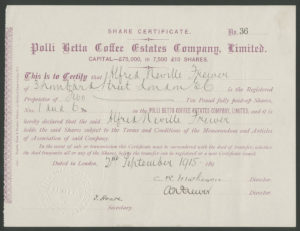 SHARE CERTIFICATE.
No. 36
Polli Betta Coffee Estates Company, Limited.
CAPITAL—£75,000, in 7,500 £10 SHARES.
This is to Certify that Alfred Neville Frewer
Lombard Street London E.C. is the Registered
Proprietor of Two Ten Pound fully paid-up Shares,
Nos. 1 and 6 in the POLLI BETTA COFFEE ESTATES COMPANY, LIMITED, and it is
hereby declared that the said Alfred Neville Frewer
holds the said Shares subject to the Terms and Conditions of the Memorandum and Articles
of Association of said Company.
In the event of sale or transmission this Certificate must be surrendered with the deed of transfer, whether
the deed transmits all or any of the Shares, before the transfer can be registered or a new Certificate issued.
Dated in London, 2nd September 1915
Director
A N Frewer Director
Secretary